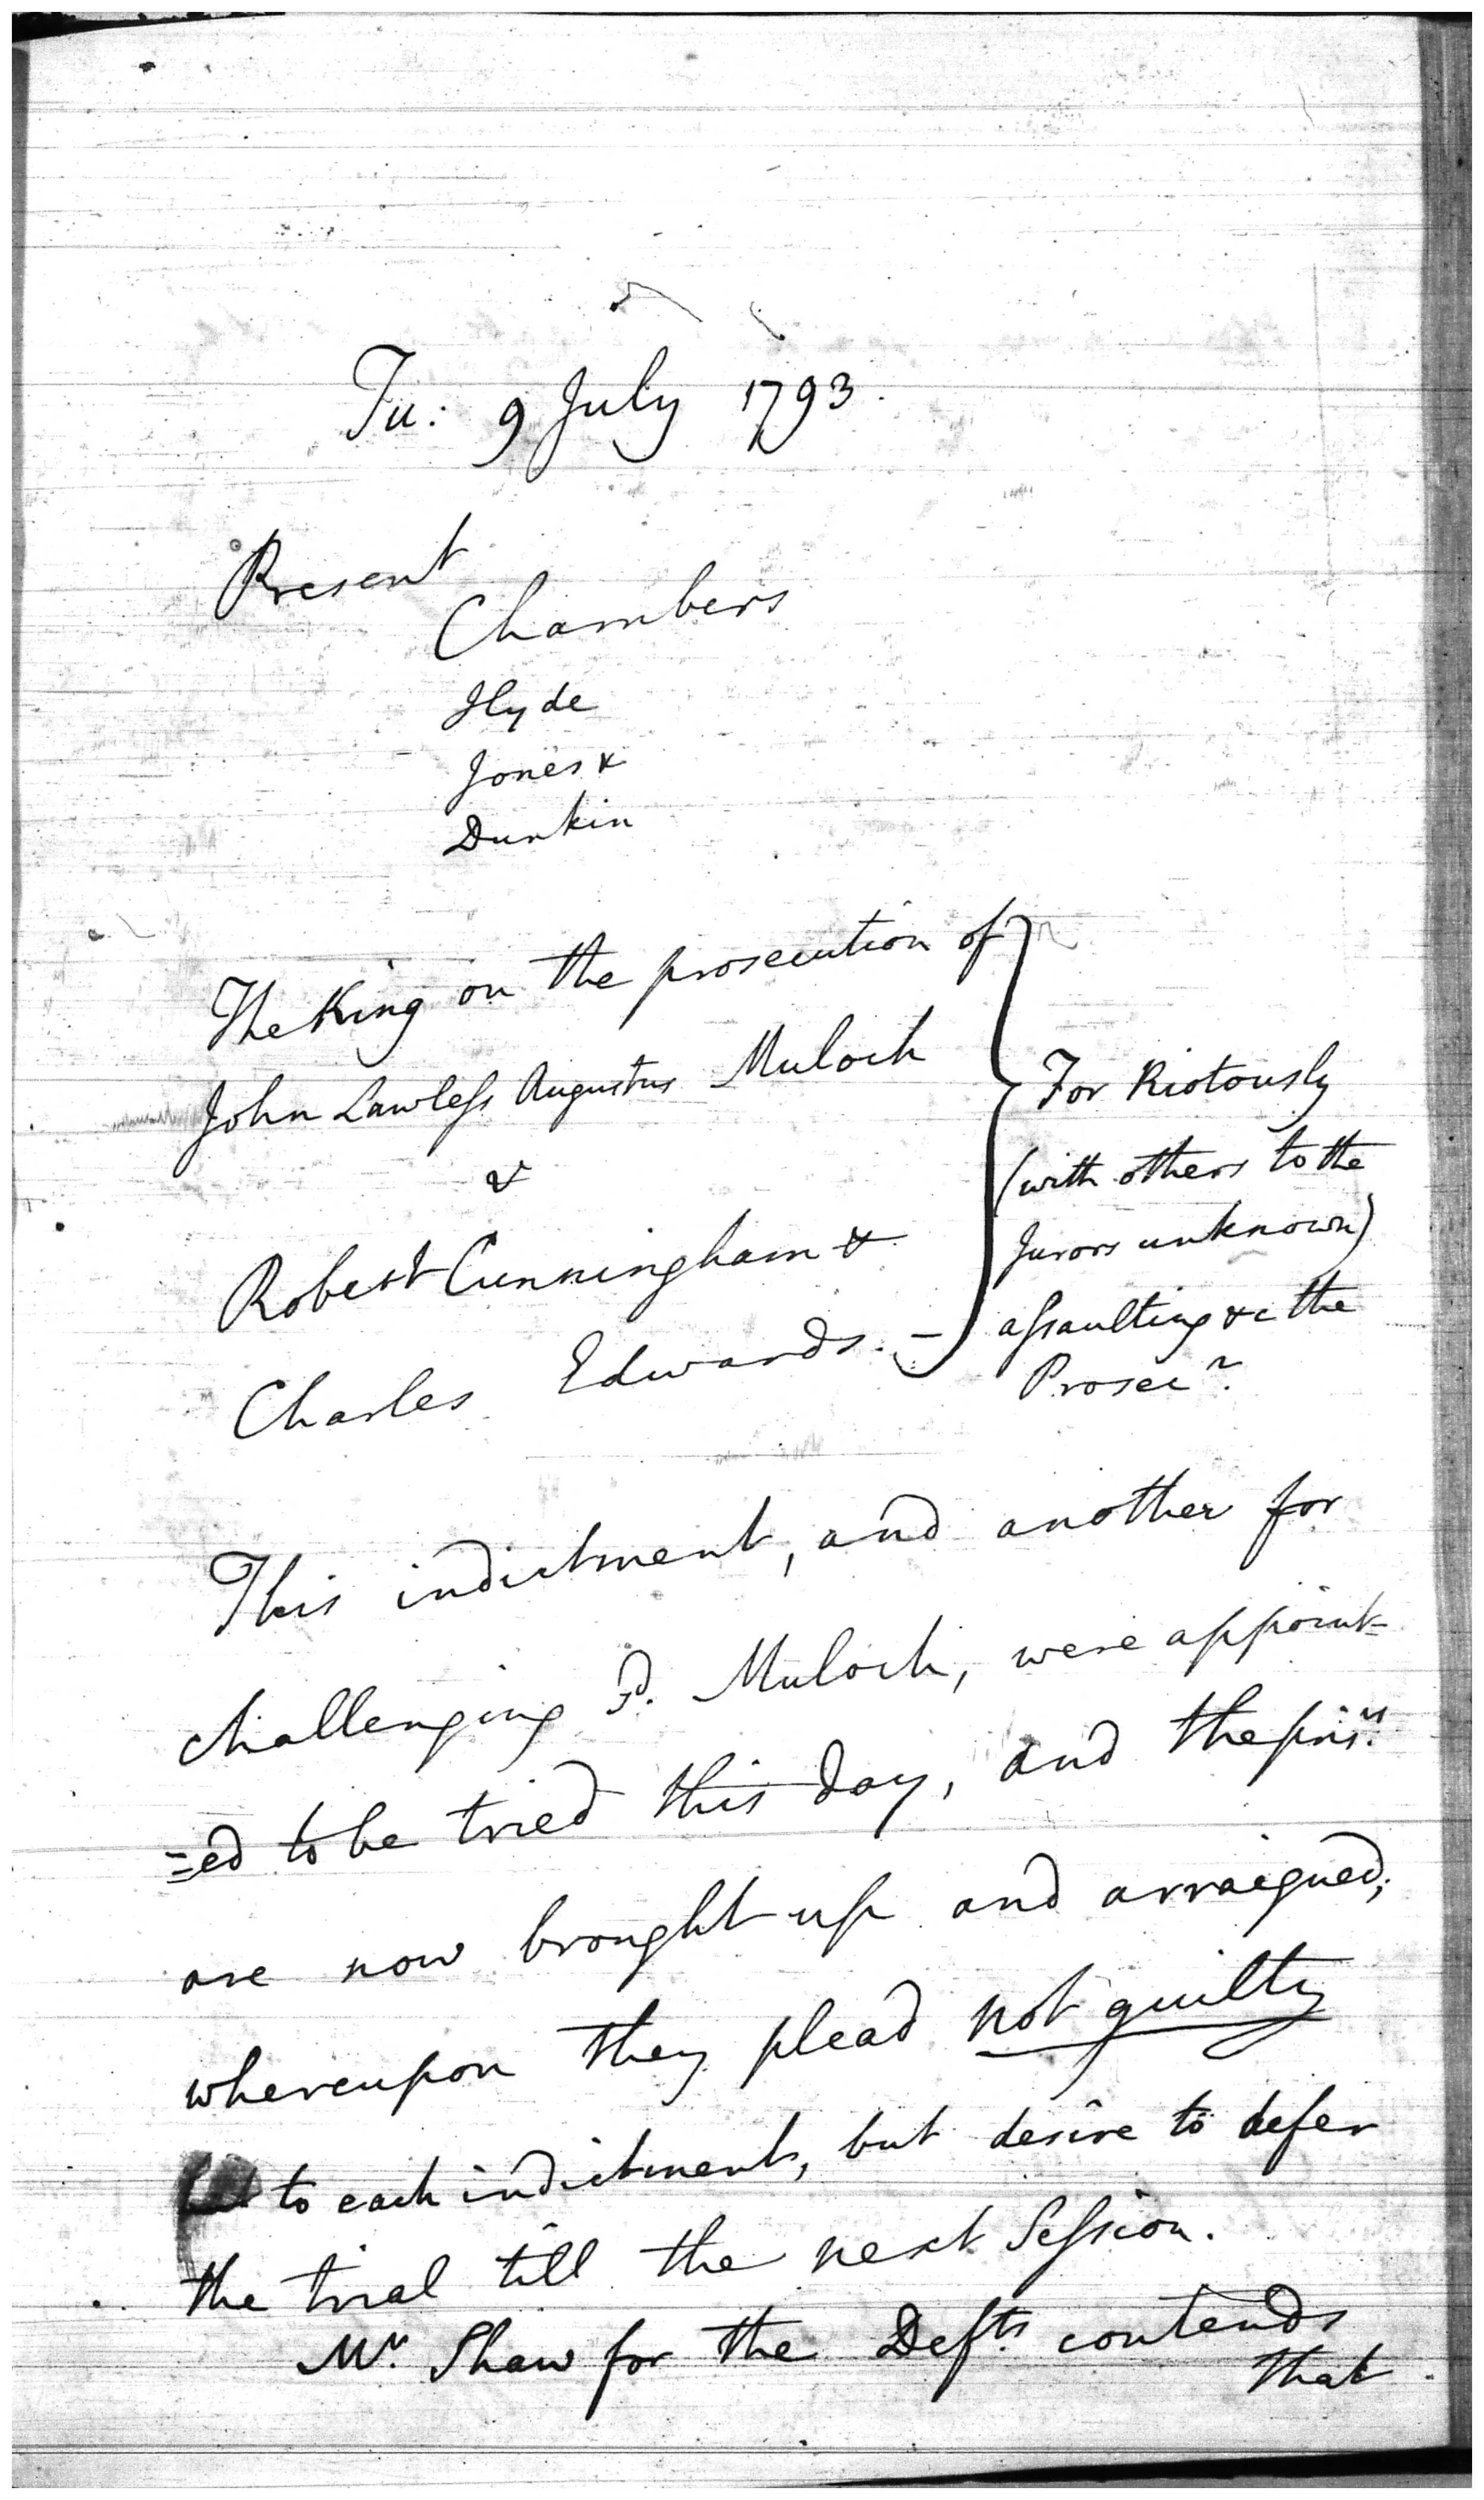 Tu: 9 July 1793.
Present
Chambers
Hyde
Jones &
Dunkin
The King on the prosecution of
John Lawless Augustus Muloch
v
Robert Cunningham &
Charles Edwards. –
For Riotously
(with others to the
Jurors unknown)
assaulting &c the
Prosecr.
This indictment, and another for
challenging sd. Muloch, were appoint=
=ed to be tried this day, and the prisrs.
are now brought up and arraigned;
whereupon they plead not guilty
to each indictment, but desire to defer
the trial till the next Session.
Mr. Shaw for the Defts. contends
that